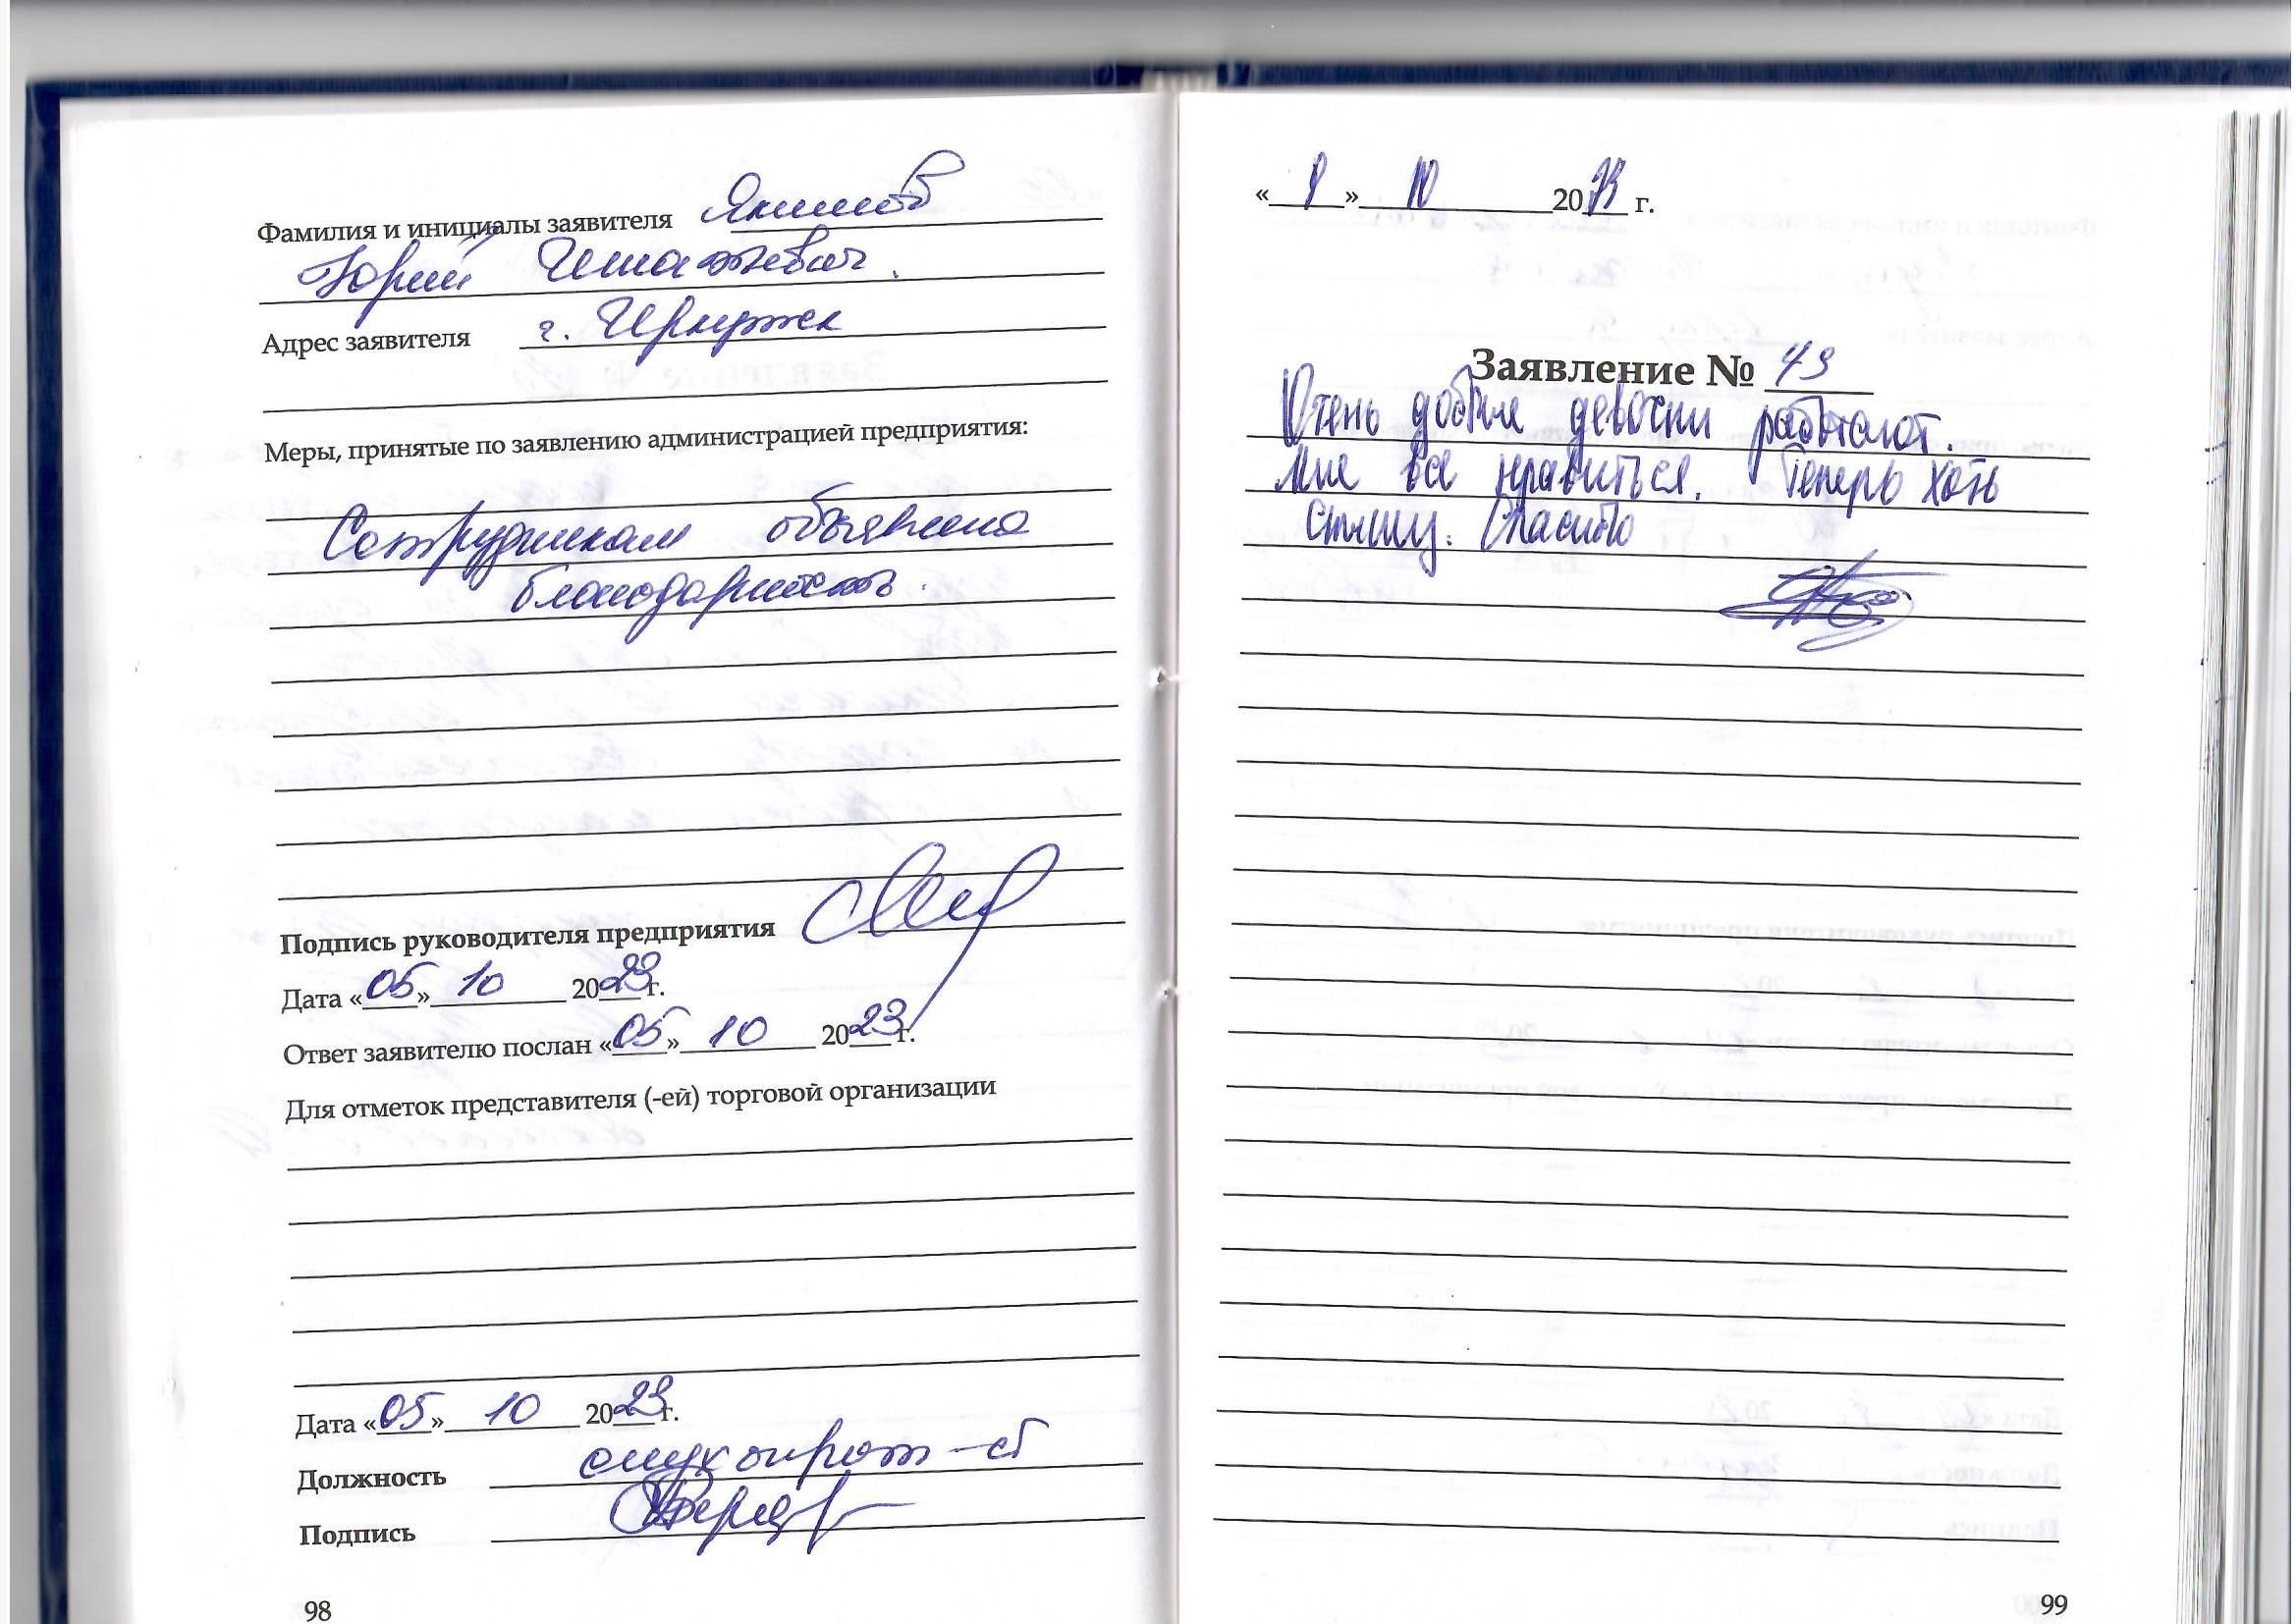 Фамилия и инициалы заявителя Якимов
Юрий Игнатьевич.
Адрес заявителя г. Иркутск
Меры, принятые по заявлению администрацией предприятия:
Сотрудникам объявлена
благодарность.
Подпись руководителя предприятия
Дата «05» 10 2023 г.
Ответ заявителю послан «05» 10 2023 г.
Для отметок представителя (-ей) торговой организации
Дата «05» 10 2023 г.
Должность
Подпись
98
« » 10 2023 г.
Заявление № 49
Очень добрые девочки работают.
Мне все нравиться. Теперь хоть
слышу. Спасибо
99